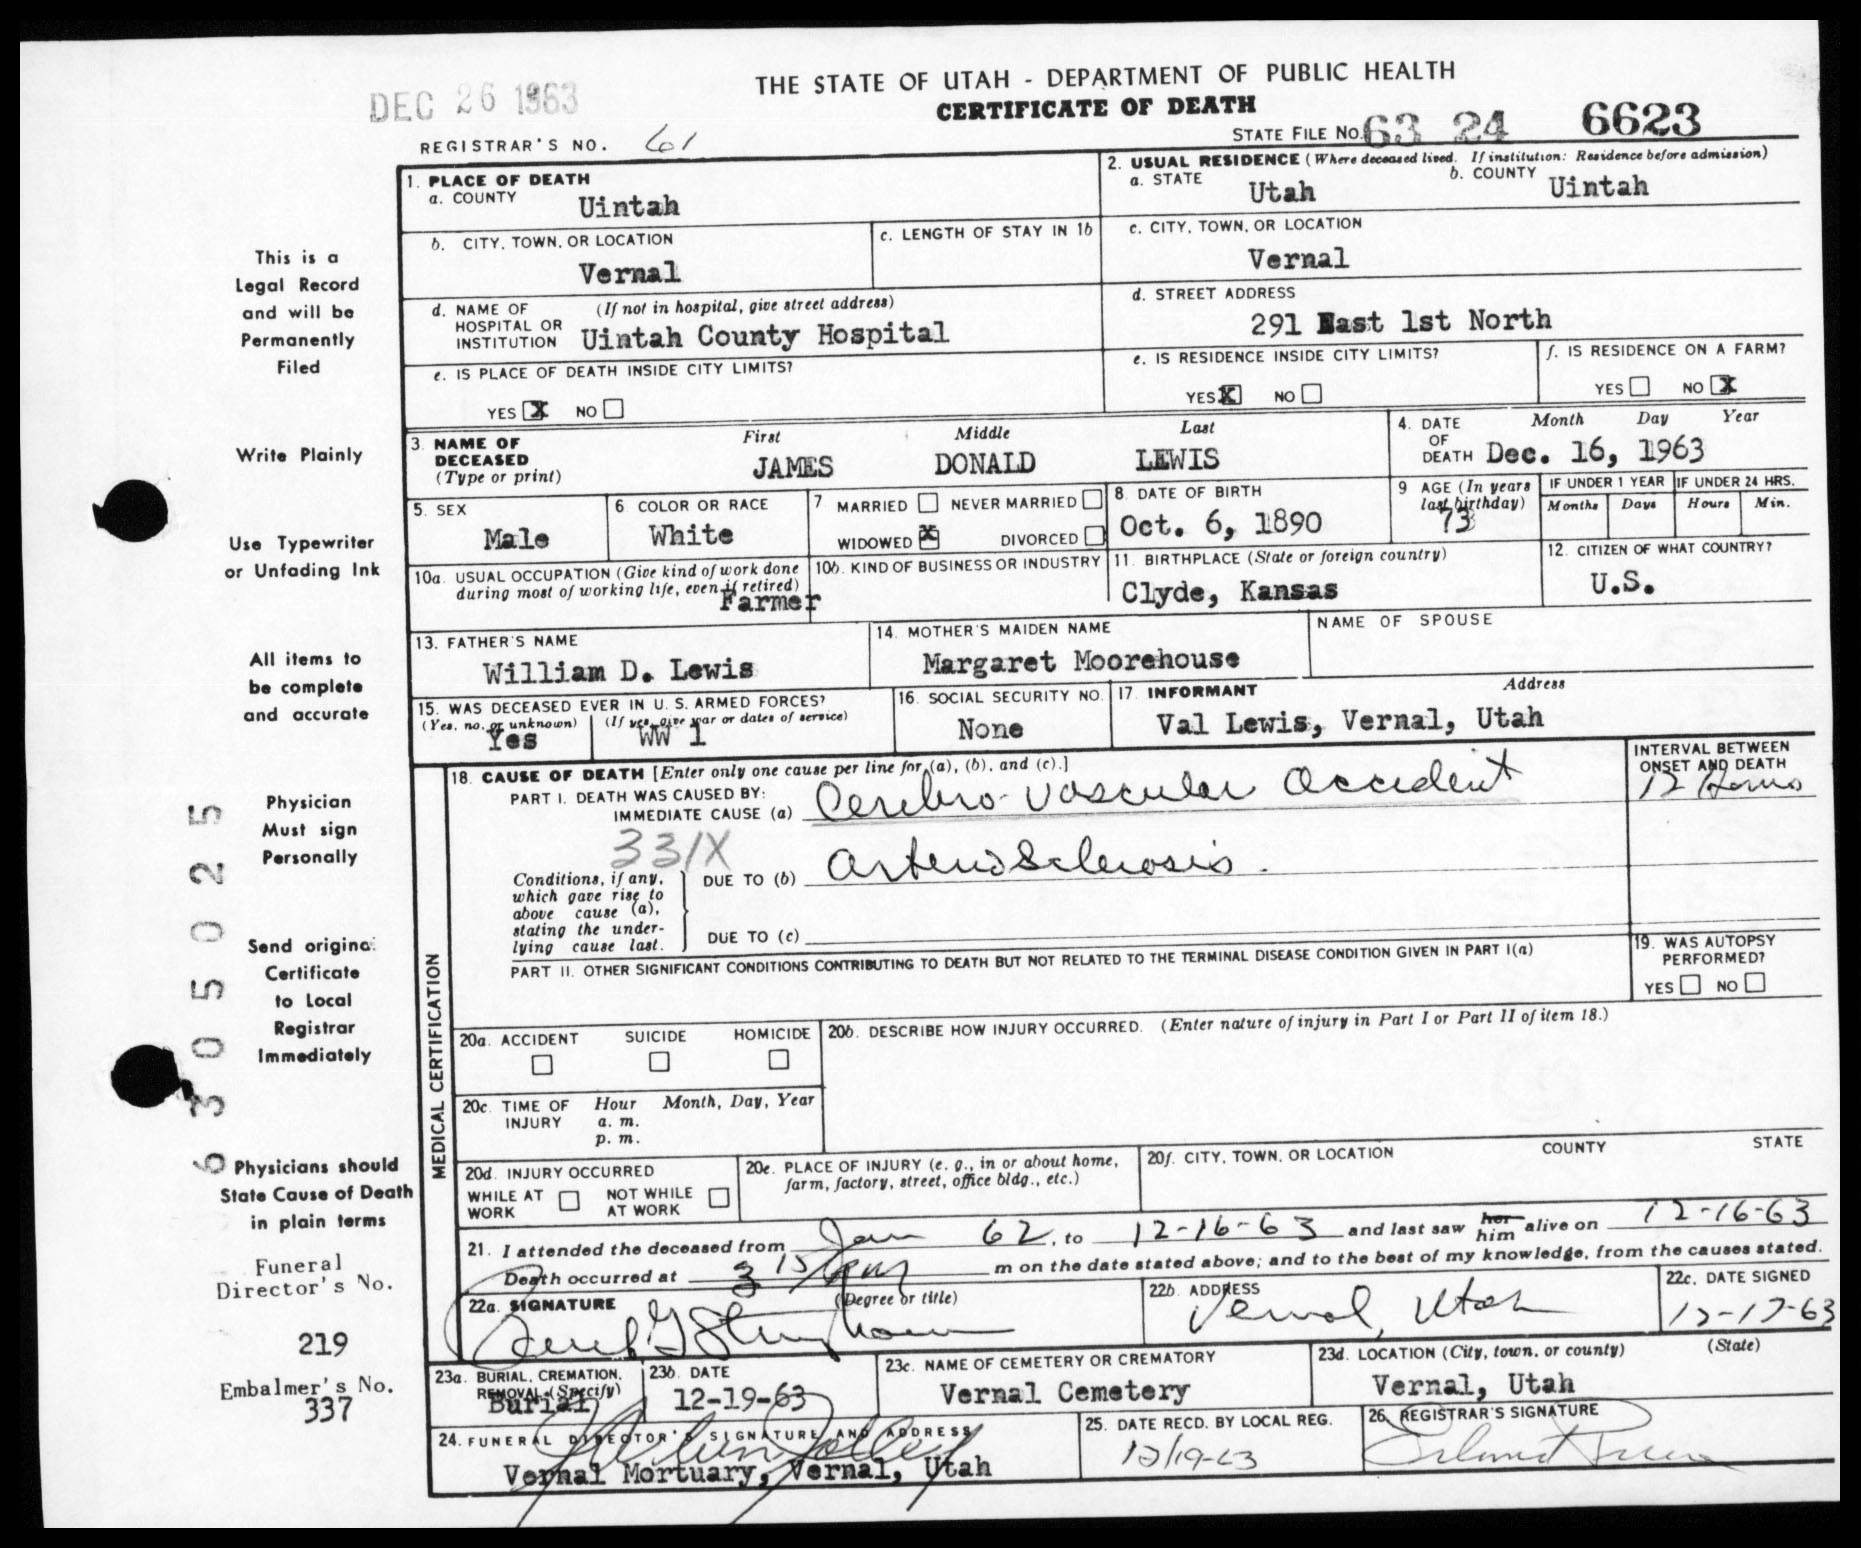 THE STATE OF UTAH - DEPARTMENT OF PUBLIC HEALTH
DEC 26 1963
CERTIFICATE OF DEATH
STATE FILE NO. 63 24 6623
REGISTRAR'S NO. 61
This is a
Legal Record
and will be
Permanently
Filed
Write Plainly
Use Typewriter
or Unfading Ink
All items to
be complete
and accurate
Physician
Must sign
Personally
Send original
Certificate
to Local
Registrar
Immediately
Physicians should
State Cause of Death
in plain terms
Funeral
Director's No.
219
Embalmer's No.
337
6305025
1. PLACE OF DEATH
a. COUNTY
Uintah
2. USUAL RESIDENCE (Where deceased lived. If institution: Residence before admission)
a. STATE Utah
b. COUNTY Uintah
b. CITY, TOWN, OR LOCATION
Vernal
c. LENGTH OF STAY IN 1b
c. CITY, TOWN, OR LOCATION
Vernal
d. NAME OF HOSPITAL OR INSTITUTION (If not in hospital, give street address)
Uintah County Hospital
d. STREET ADDRESS
291 East 1st North
e. IS PLACE OF DEATH INSIDE CITY LIMITS?
YES X NO
e. IS RESIDENCE INSIDE CITY LIMITS?
YES X NO
f. IS RESIDENCE ON A FARM?
YES NO X
3. NAME OF
DECEASED
(Type or print)
First Middle Last
JAMES DONALD LEWIS
4. DATE OF DEATH Month Day Year
Dec. 16, 1963
5. SEX
Male
6 COLOR OR RACE
White
7 MARRIED NEVER MARRIED
WIDOWED X DIVORCED
8. DATE OF BIRTH
Oct. 6, 1890
9 AGE (In years last birthday)
73
IF UNDER 1 YEAR
Months Days
IF UNDER 24 HRS.
Hours Min.
10a. USUAL OCCUPATION (Give kind of work done
during most of working life, even if retired)
Farmer
10b. KIND OF BUSINESS OR INDUSTRY
11. BIRTHPLACE (State or foreign country)
Clyde, Kansas
12. CITIZEN OF WHAT COUNTRY?
U.S.
13. FATHER'S NAME
William D. Lewis
14. MOTHER'S MAIDEN NAME
Margaret Moorehouse
NAME OF SPOUSE
15. WAS DECEASED EVER IN U. S. ARMED FORCES?
(Yes, no, or unknown) (If yes, give war or dates of service)
Yes WW 1
16. SOCIAL SECURITY NO.
None
17. INFORMANT Address
Val Lewis, Vernal, Utah
MEDICAL CERTIFICATION
18. CAUSE OF DEATH [Enter only one cause per line for (a), (b), and (c).]
PART I. DEATH WAS CAUSED BY:
IMMEDIATE CAUSE (a) Cerebro-vascular accident
INTERVAL BETWEEN
ONSET AND DEATH
12 Hours
331X
Conditions, if any,
which gave rise to
above cause (a),
stating the under-
lying cause last.
DUE TO (b) arteriosclerosis.
DUE TO (c)
PART II. OTHER SIGNIFICANT CONDITIONS CONTRIBUTING TO DEATH BUT NOT RELATED TO THE TERMINAL DISEASE CONDITION GIVEN IN PART I(a)
19. WAS AUTOPSY
PERFORMED?
YES NO
20a. ACCIDENT SUICIDE HOMICIDE
20b. DESCRIBE HOW INJURY OCCURRED. (Enter nature of injury in Part I or Part II of item 18.)
20c. TIME OF INJURY Hour Month, Day, Year
a. m.
p. m.
20d. INJURY OCCURRED
WHILE AT WORK NOT WHILE AT WORK
20e. PLACE OF INJURY (e. g., in or about home,
farm, factory, street, office bldg., etc.)
20f. CITY, TOWN, OR LOCATION COUNTY STATE
21. I attended the deceased from Jan 62, to 12-16-63 and last saw her him alive on 12-16-63
Death occurred at 3 15 pm m on the date stated above; and to the best of my knowledge, from the causes stated.
22a. SIGNATURE (Degree or title)
22b. ADDRESS
Vernal, Utah
22c. DATE SIGNED
12-17-63
23a. BURIAL, CREMATION,
REMOVAL (Specify)
Burial
23b. DATE
12-19-63
23c. NAME OF CEMETERY OR CREMATORY
Vernal Cemetery
23d. LOCATION (City, town, or county) (State)
Vernal, Utah
24. FUNERAL DIRECTOR'S SIGNATURE AND ADDRESS
Vernal Mortuary, Vernal, Utah
25. DATE RECD. BY LOCAL REG.
12/19-63
26. REGISTRAR'S SIGNATURE